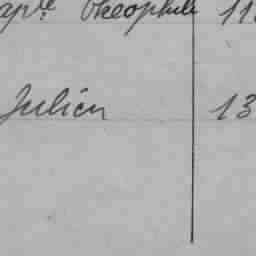 apte Théophile 11
Julien 13